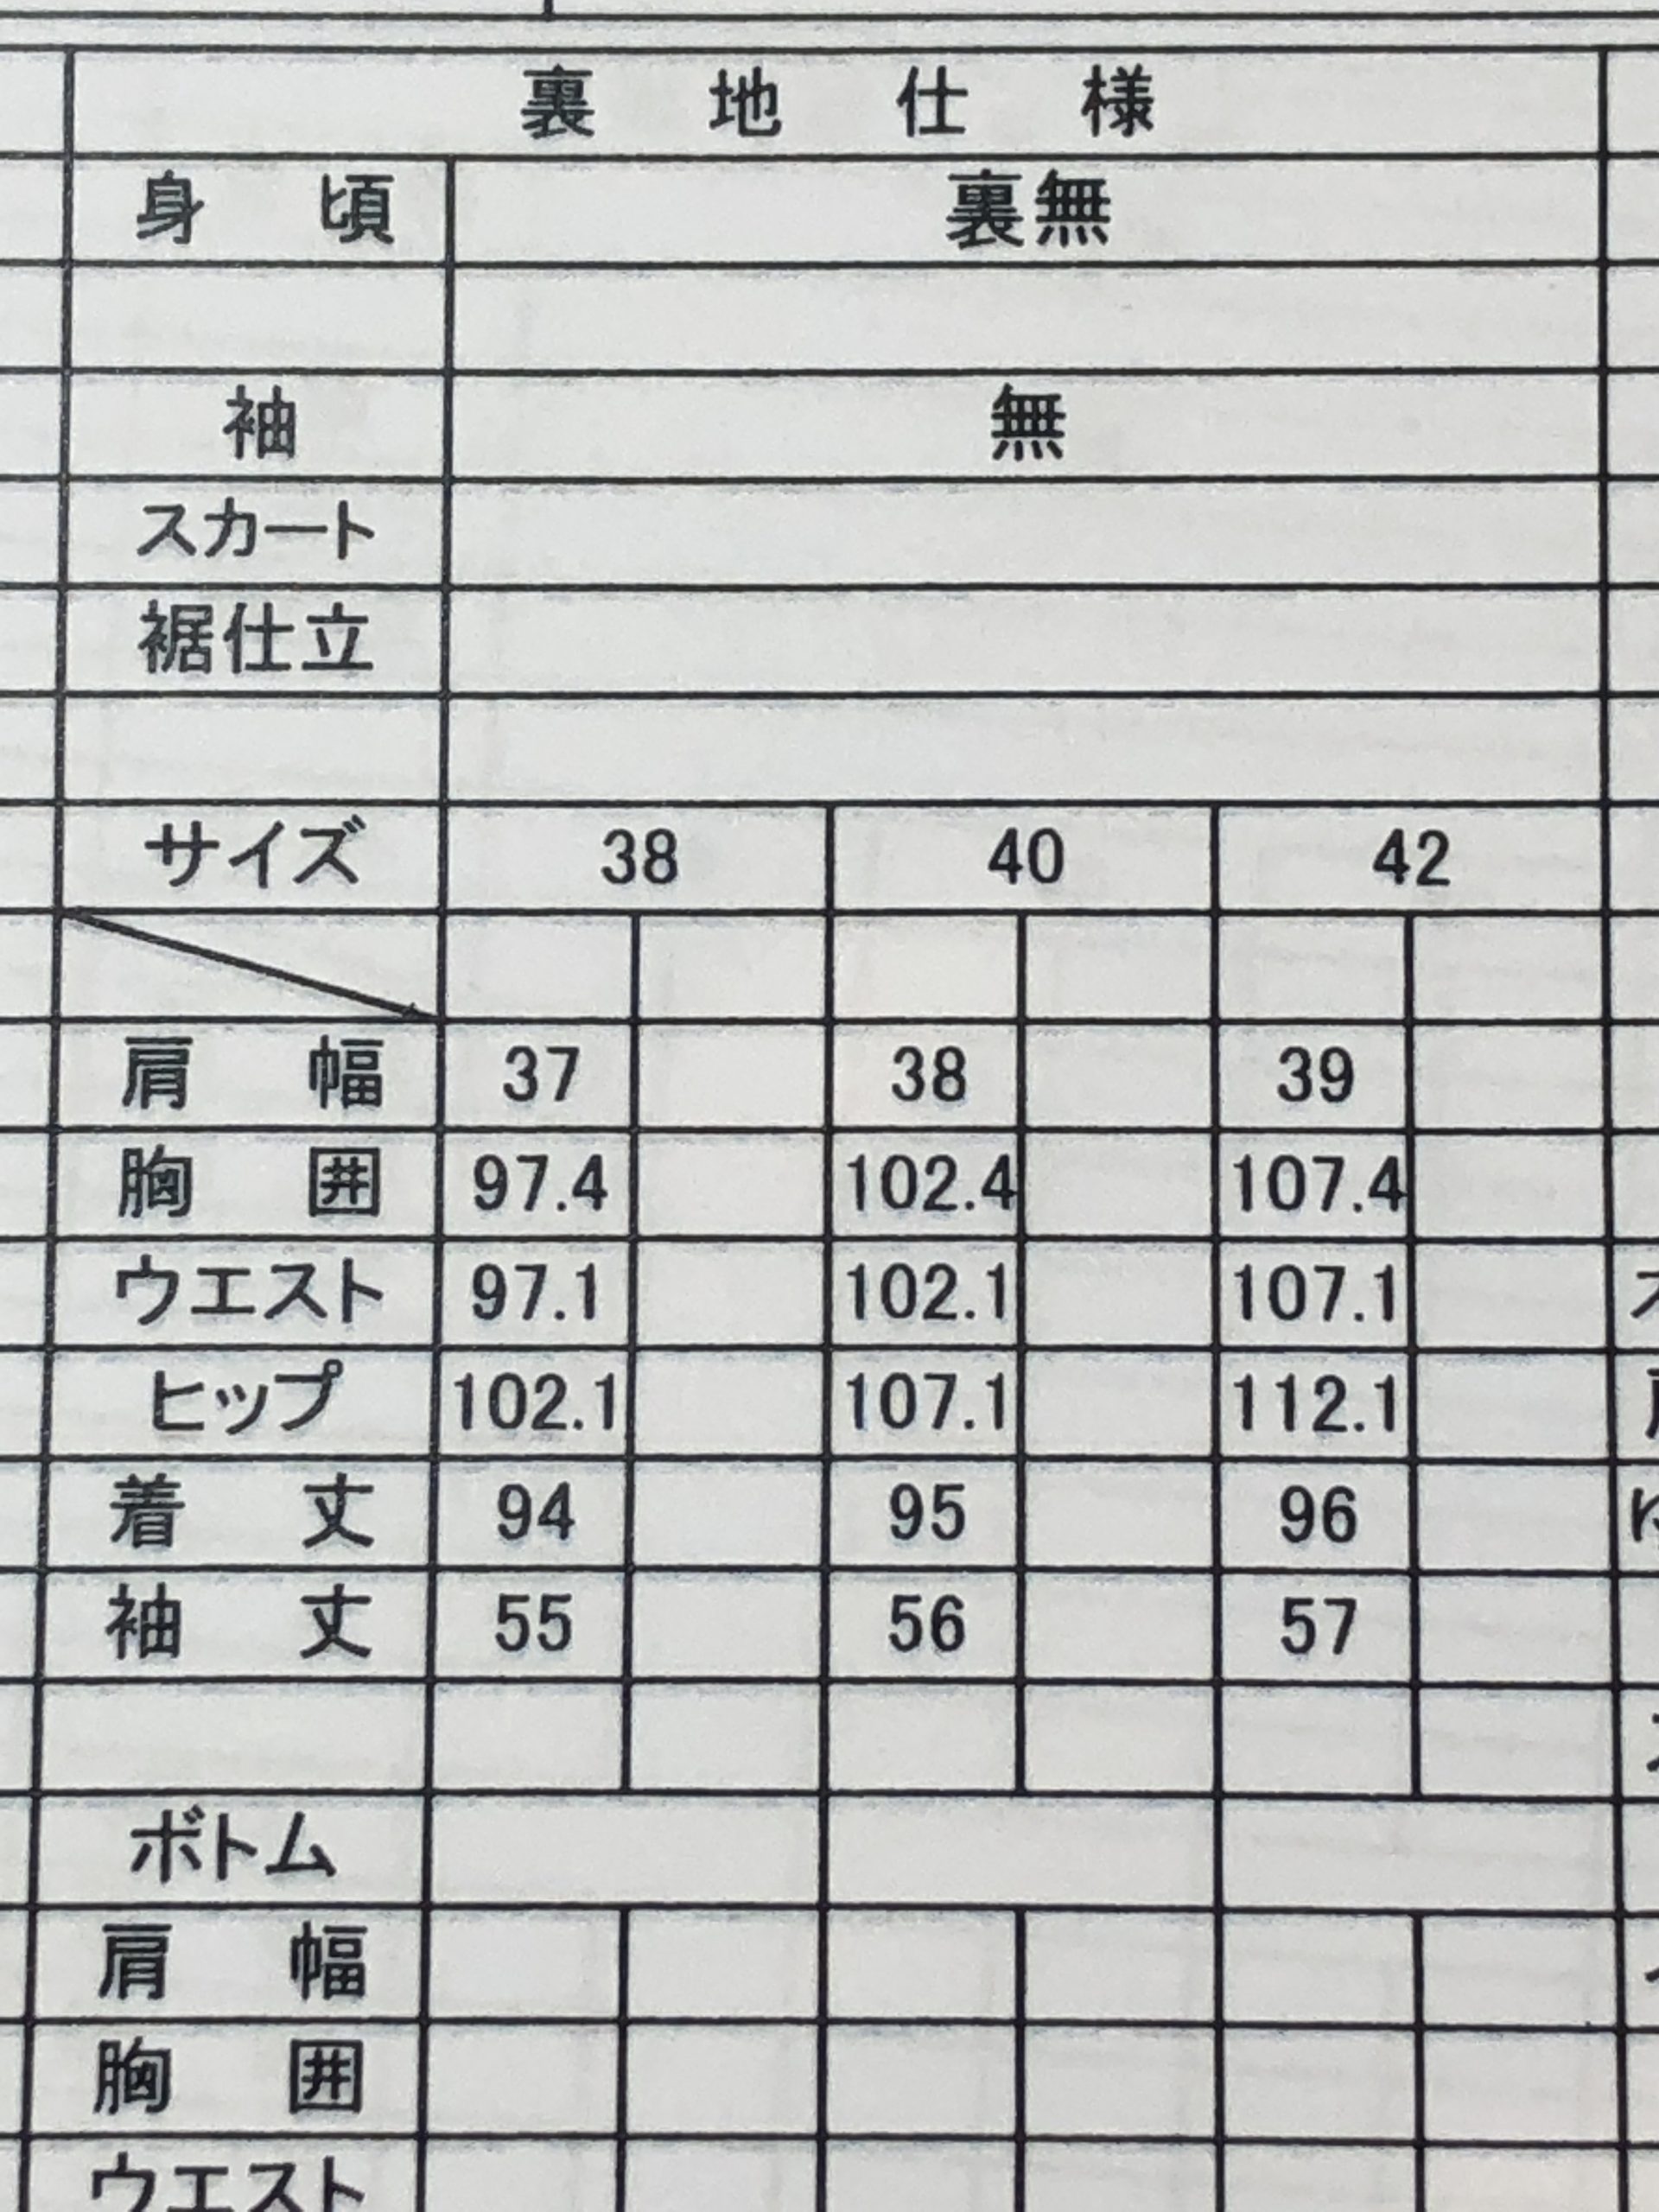 裏地仕様
身頃 裏無
袖 無
スカート
裾仕立
サイズ 38 40 42
肩幅 37 38 39
胸囲 97.4 102.4 107.4
ウエスト 97.1 102.1 107.1
ヒップ 102.1 107.1 112.1
着丈 94 95 96
袖丈 55 56 57
ボトム
肩幅
胸囲
ウエスト